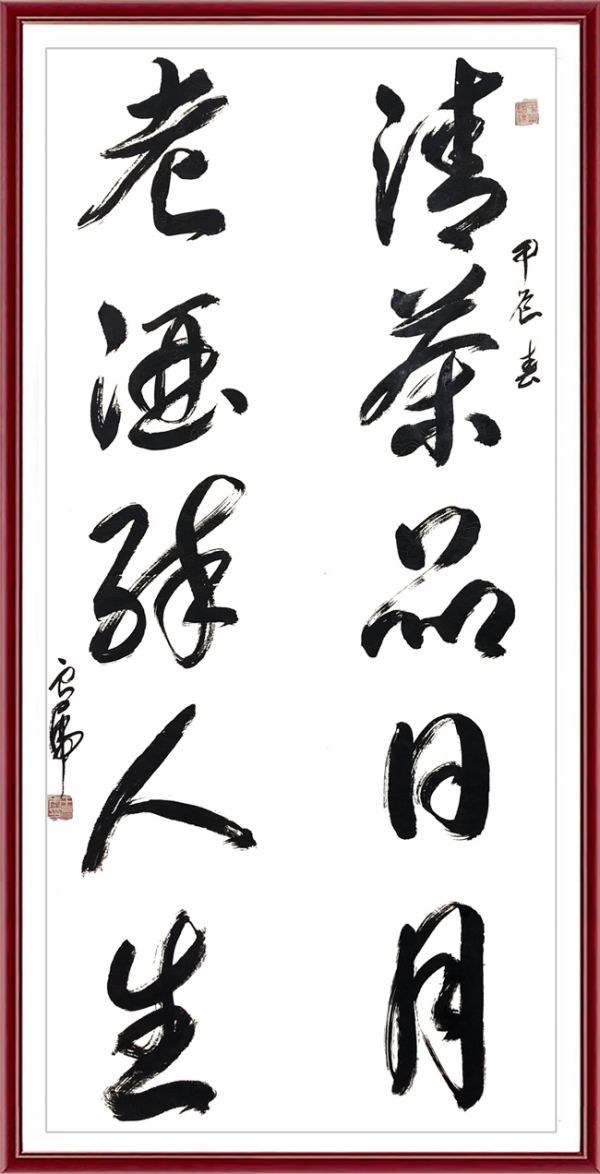 清茶品日月
甲辰春
老酒人生